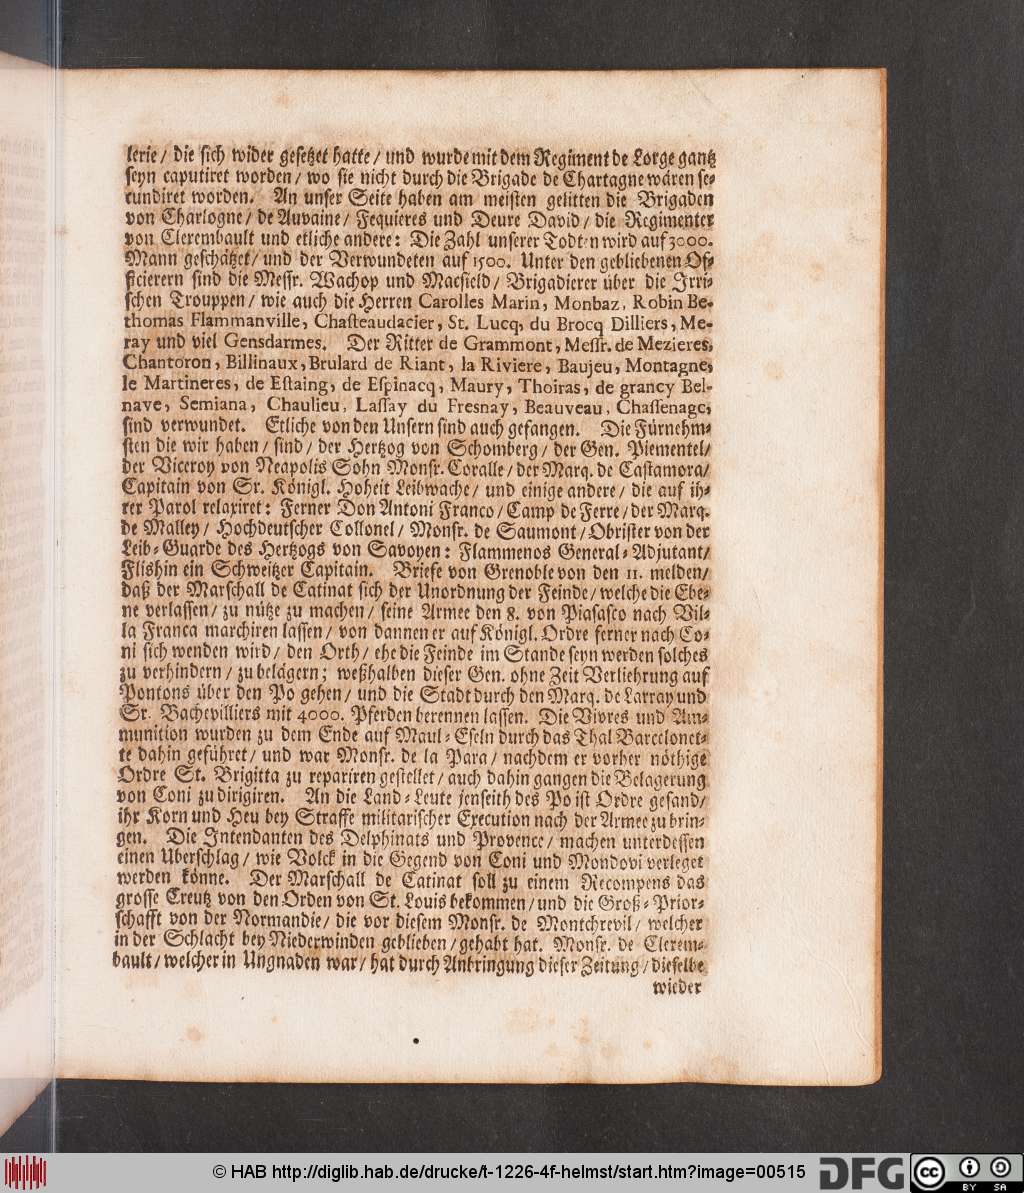 lerie / die sich wider gesetzet hatte / und wurde mit dem Regiment de Lorge gantz
seyn caputiret worden / wo sie nicht durch die Brigade de Chartagne wären se-
cundiret worden. An unser Seite haben am meisten gelitten die Brigaden
von Charlogne / de Auvaine / Fequieres und Deure David / die Regimenter
von Clerembault und etliche andere: Die Zahl unserer Todten wird auf 3000.
Mann geschätzet / und der Verwundeten auf 1500. Unter den gebliebenen Of-
ficierern sind die Messr. Wachop und Macsield / Brigadierer über die Irri-
schen Trouppen / wie auch die Herren Carolles Marin, Monbaz, Robin Be-
thomas Flammanville, Chasteaudacier, St. Lucq, du Brocq Dilliers, Me-
ray und viel Gensdarmes. Der Ritter de Grammont, Messr. de Mezieres,
Chantoron, Billinaux, Brulard de Riant, la Riviere, Baujeu, Montagne,
le Martineres, de Estaing, de Espinacq, Maury, Thoiras, de grancy Bel-
nave, Semiana, Chaulieu, Lassay du Fresnay, Beauveau, Chassenage,
sind verwundet. Etliche von den Unsern sind auch gefangen. Die Fürnehm-
sten die wir haben / sind / der Hertzog von Schomberg / der Gen. Piementel /
der Viceroy von Neapolis Sohn Monsr. Coralle / der Marq. de Castamora /
Capitain von Sr. Königl. Hoheit Leibwache / und einige andere / die auf ih-
rer Parol relaxiret: Ferner Don Antoni Franco / Camp de Ferre / der Marq.
de Malley / Hochdeutscher Collonel / Monsr. de Saumont / Obrister von der
Leib-Guarde des Hertzogs von Savoyen: Flammenos General-Adjutant /
Flishin ein Schweitzer Capitain. Briefe von Grenoble von den 11. melden /
daß der Marschall de Catinat sich der Unordnung der Feinde / welche die Ebe-
ne verlassen / zu nütze zu machen / seine Armee den 8. von Piasasco nach Vil-
la Franca marchiren lassen / von dannen er auf Königl. Ordre ferner nach Co-
ni sich wenden wird / den Orth / ehe die Feinde im Stande seyn werden solches
zu verhindern / zu belägern; weßhalben dieser Gen. ohne Zeit Verliehrung auf
Pontons über den Po gehen / und die Stadt durch den Marq. de Larray und
Sr. Bachevilliers mit 4000. Pferden berennen lassen. Die Vivres und Am-
munition wurden zu dem Ende auf Maul-Eseln durch das Thal Barcelonet-
te dahin geführet / und war Monsr. de la Para / nachdem er vorher nöthige
Ordre St. Brigitta zu repariren gestellet / auch dahin gangen die Belagerung
von Coni zu dirigiren. An die Land-Leute jenseith des Po ist Ordre gesand /
ihr Korn und Heu bey Straffe militarischer Execution nach der Armee zu brin-
gen. Die Intendanten des Delphinats und Provence / machen unterdessen
einen Uberschlag / wie Volck in die Gegend von Coni und Mondovi verleget
werden könne. Der Marschall de Catinat soll zu einem Recompens das
grosse Creutz von den Orden von St. Louis bekommen / und die Groß-Prior-
schafft von der Normandie / die vor diesem Monsr. de Montchrevil / welcher
in der Schlacht bey Niederwinden geblieben / gehabt hat. Monsr. de Clerem-
bault / welcher in Ungnaden war / hat durch Anbringung dieser Zeitung / dieselbe
wieder
© HAB http://diglib.hab.de/drucke/t-1226-4f-helmst/start.htm?image=00515
DFG
cc BY SA